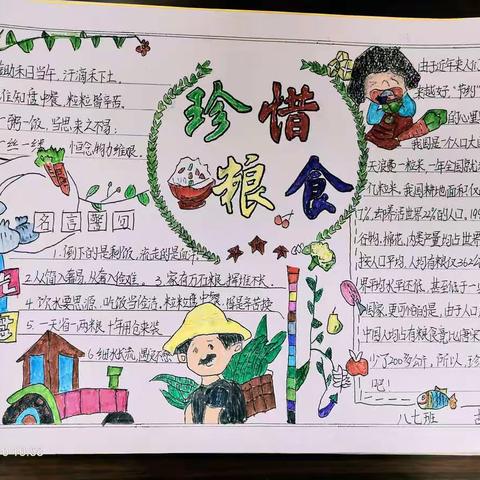 锄禾日当午，汗滴禾下土。
谁知盘中餐，粒粒皆辛苦。
一粥一饭，当思来之不易；
一丝一缕，恒念物力维艰。
珍惜
粮食
名言警句
1.倒下的是剩饭，流走的是血
2.从俭入奢易，从奢入俭难。3.家有万石粮，挥霍不久
4.饮水要思源，吃饭当俭洁，粒粒盘中餐，
5.一天省一两粮，十年用仓来装
6.细水长流，遇
由于近年来人们
来越好，"节约"
的心里
我国是一个人口大国
天浪费一粒米，一年全国就
亿粒米，我国耕地面积仅
7%，却养活世界22%的人口，19
谷物，棉花，肉类产量均占世界
按人口平均，人均有粮仅362公
界平均水平还低，甚至低于一
国家，更可怕的是，由于人口
中国人均占有粮食竟比唐宋
少了200多公斤，所以，珍
吧！
八七班